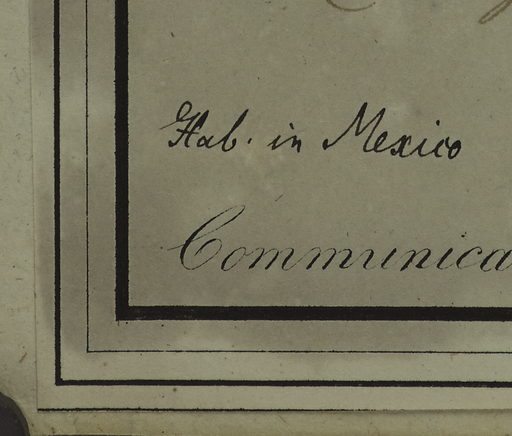 Hab. in Mexico
Communica